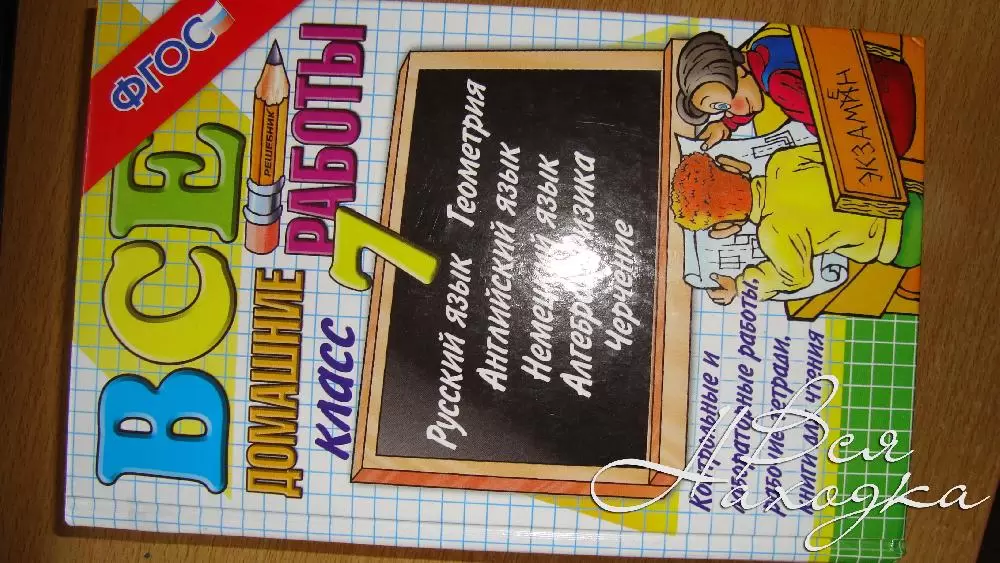 ФГОС
ВСЕ
ДОМАШНИЕ
РЕШЕБНИК
РАБОТЫ
класс 7
Русский язык Геометрия
Английский язык
Немецкий язык
Алгебра Физика
Черчение
ЭКЗАМЕН
Контрольные и
лабораторные работы,
рабочие тетради,
книги для чтения
Вся
Находка